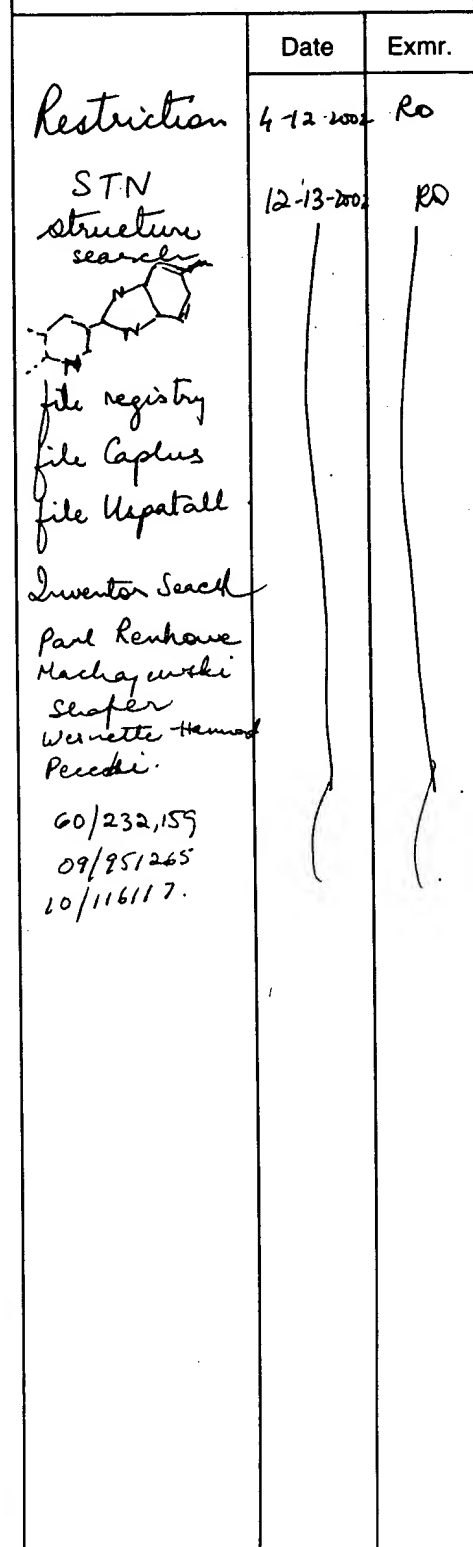 Date Exmr.
Restriction 4-12-2002 RD
STN 12-13-2002 RD
structure
search
N
N
N
file registry
file Caplus
file Uspatall
Inventor Search
Paul Renhowe
Machajewski
Shafer
Wernette Hammond
Pecchi.
60/232,159
09/951265
10/116117.